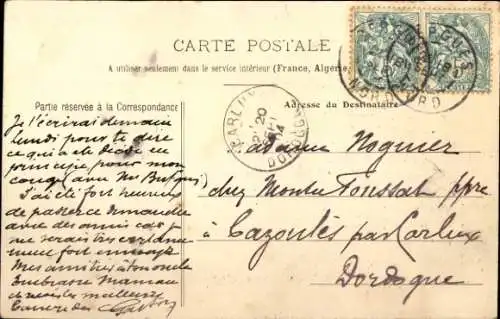 CARTE POSTALE
A utiliser seulement dans le service intérieur (France, Algérie
Partie réservée à la Correspondance
Adresse du Destinataire
Je t'écrirai demain
lundi pour te dire
ce qui a été décidé en
principe pour mon
congé (avec
J'ai été fort heureux
de passer ce dimanche
avec des amis car je
me serais très certaine
ment fort ennuyé
Mes amitiés à ton oncle
Embrasse Maman
et reçois les meilleures
CARLUX
20
14
DORDOGNE
Madame Noguier
chez Toussat ppre
à Cazoulès par Carlux
Dordogne
NORD